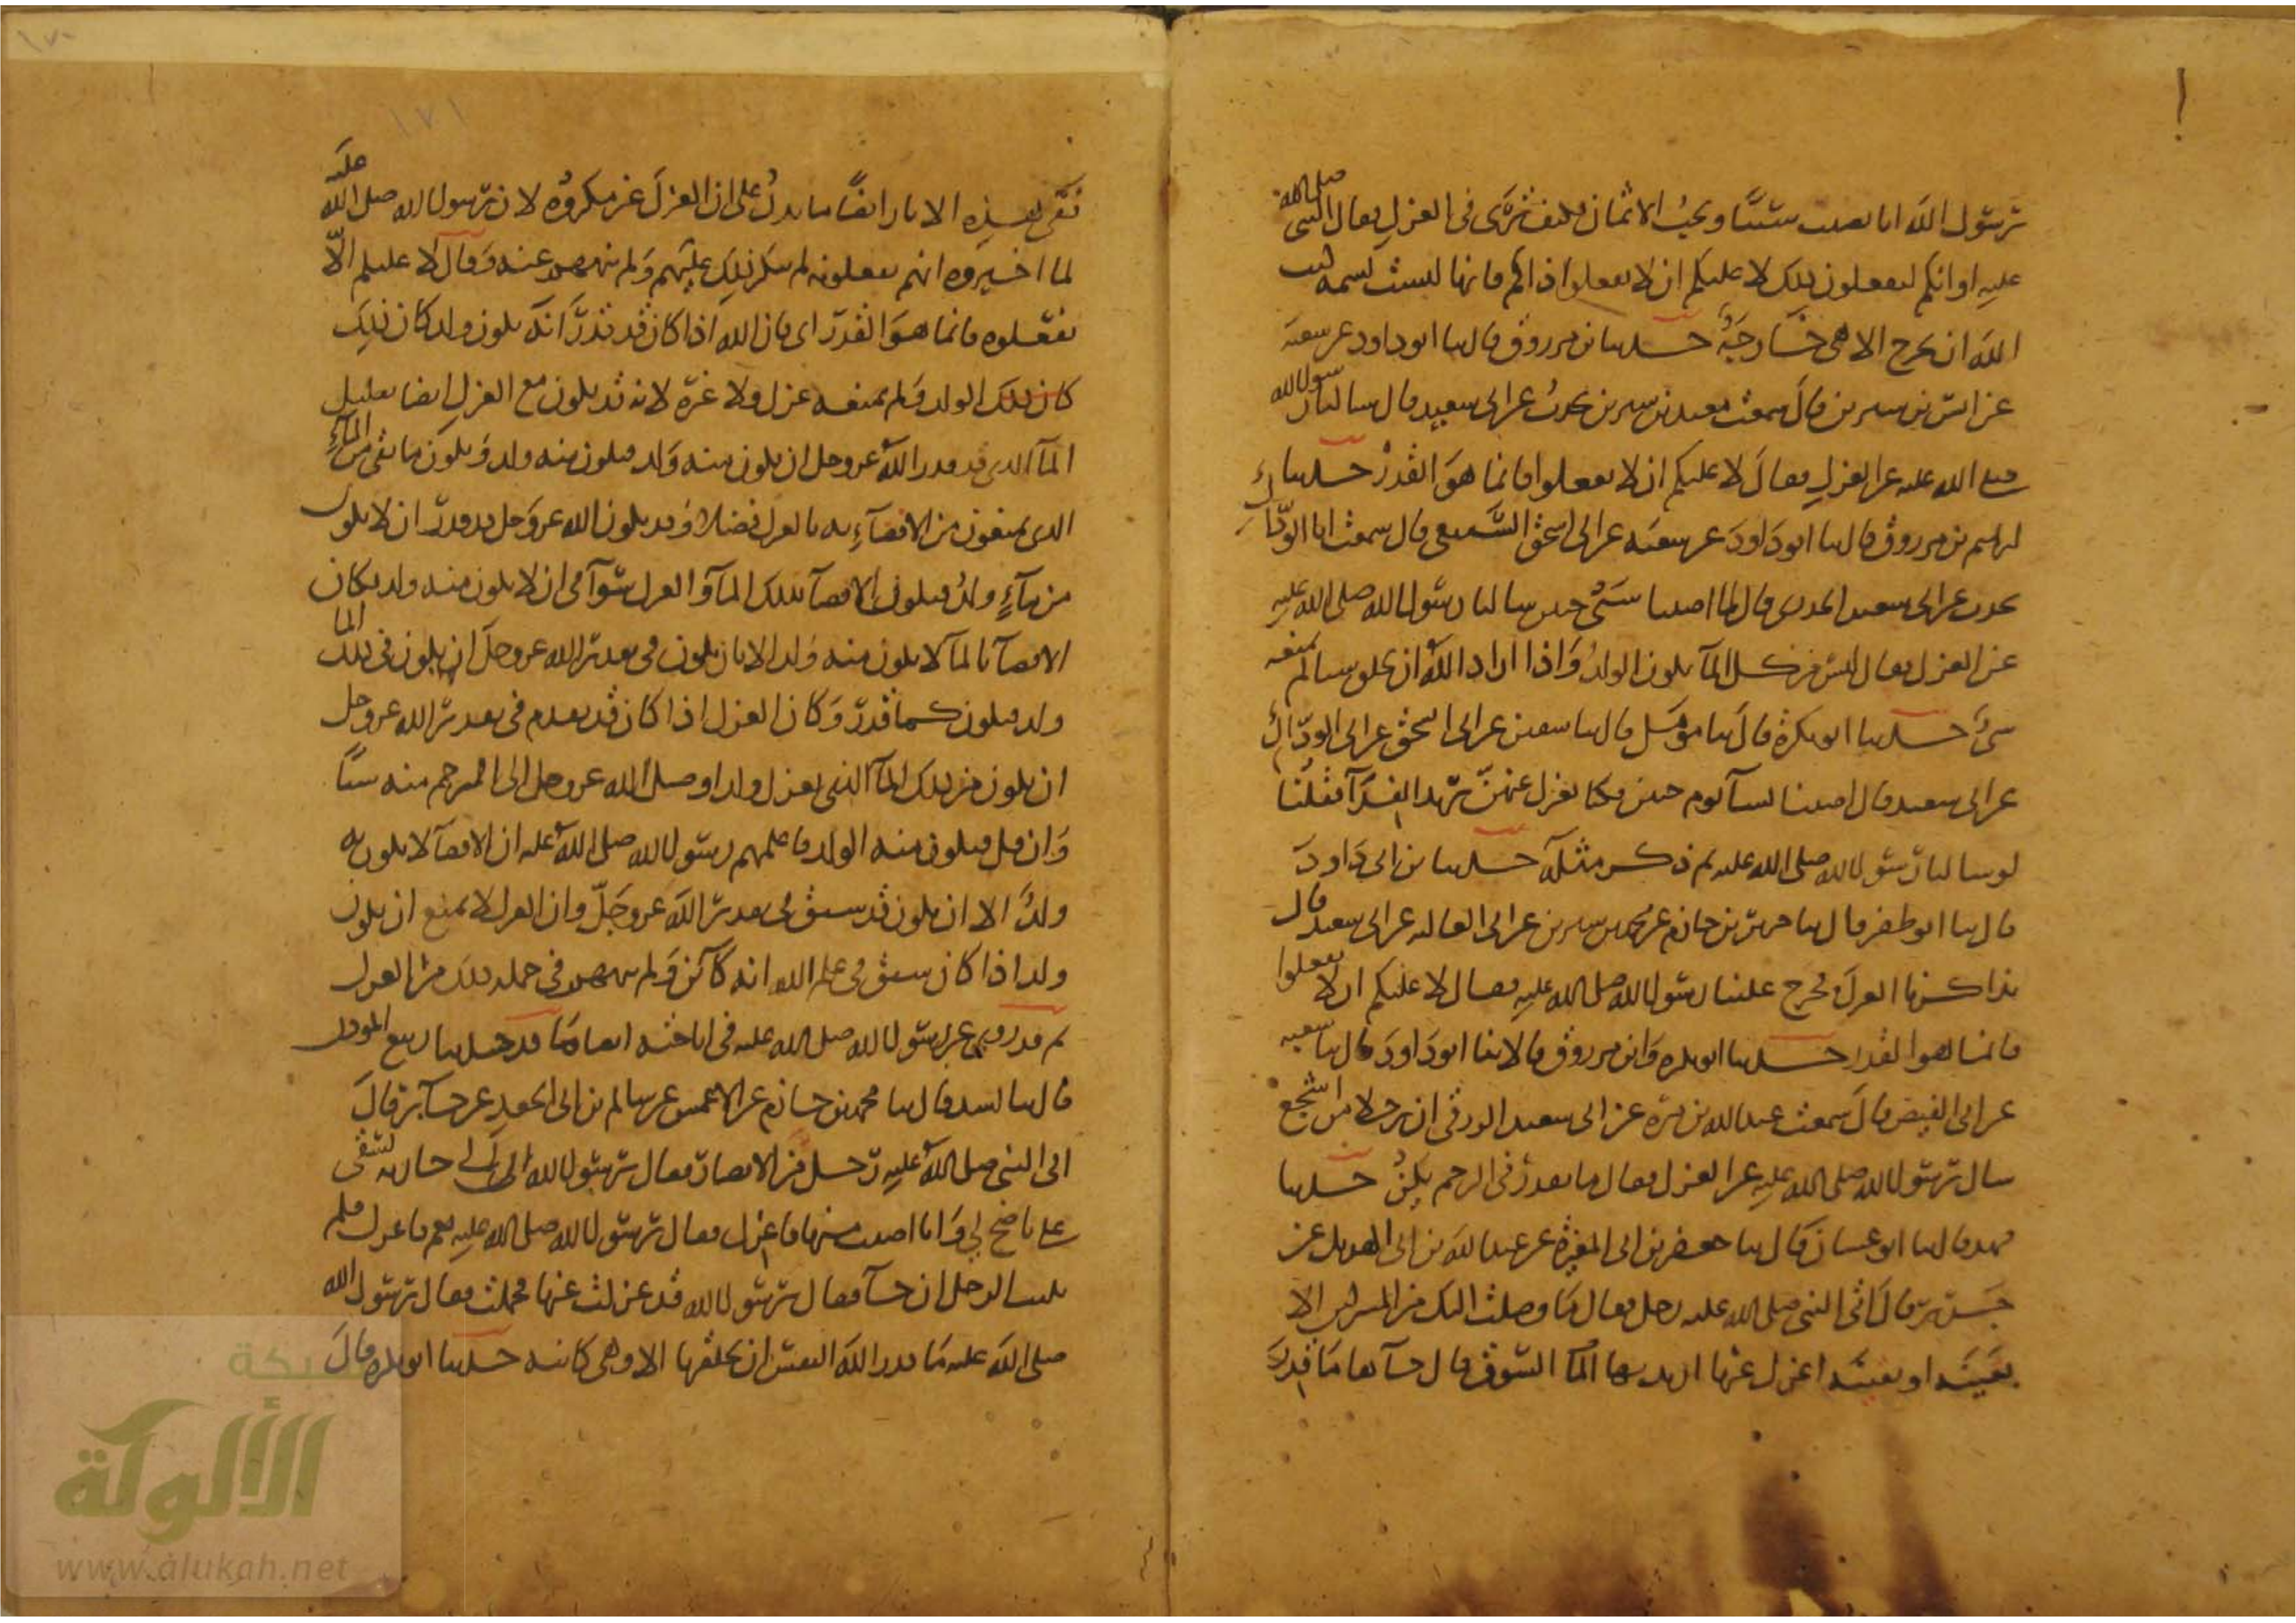 رسول الله انا نصيب سبيا ونحب الاثمان فكيف ترى في العزل فقال النبي صلى الله
عليه او انكم لتفعلون ذلك لا عليكم ان لا تفعلوا ذاكم فانها ليست نسمة كتب
الله ان تخرج الا هي خارجة حدثنا بن مرزوق قال ثنا ابو داود عن شعبة
عن انس بن سيرين قال سمعت معبد بن سيرين يحدث عن ابي سعيد قال سالنا رسول الله
صلى الله عليه عن العزل فقال لا عليكم ان لا تفعلوا فانما هو القدر حدثنا
ابرهيم بن مرزوق قال ثنا ابو داود عن شعبة عن ابي اسحق السبيعي قال سمعت ابا الوداك
يحدث عن ابي سعيد الخدري قال لما اصبنا سبي حنين سالنا رسول الله صلى الله عليه
عن العزل فقال ليس من كل الماء يكون الولد واذا اراد الله ان يخلق شيا لم يمنعه
شيء حدثنا ابو بكرة قال ثنا مؤمل قال ثنا سفين عن ابي اسحق عن ابي الوداك
عن ابي سعيد قال اصبنا نساء يوم حنين فكنا نعزل عنهن نريد الفداء فقلنا
لو سالنا رسول الله صلى الله عليه ثم ذكر مثله حدثنا بن ابي داود
قال ثنا ابو ظفر قال ثنا جرير بن حازم عن محمد بن سيرين عن ابي العالية عن ابي سعيد قال
تذاكرنا العزل فخرج علينا رسول الله صلى الله عليه فقال لا عليكم ان لا تفعلوا
فانما هو القدر حدثنا ابو بكره وابن مرزوق قالا ثنا ابو داود قال ثنا شعبه
عن ابي الفيض قال سمعت عبد الله بن مرة عن ابي سعيد الزرقي ان رجلا من اشجع
سال رسول الله صلى الله عليه عن العزل فقال ما يقدر في الرحم يكن حدثنا
فهد قال ثنا ابو غسان قال ثنا جعفر بن ابي المغيرة عن عبد الله بن ابي الهذيل عن
جرير قال اتى النبي صلى الله عليه رجل فقال ما وصلت اليك من المشركين الا
بقينة او بقينه اعزل عنها اريد بها السوق قال جاءها ما قدر
نفي هذه الاثار ايضا ما يدل على ان العزل غير مكروه لان رسول الله صلى الله عليه
لما اخبروه انهم يفعلونه لم ينكر ذلك عليهم ولم ينههم عنه وقال لا عليكم الا
تفعلوه فانما هو القدر اي فان الله اذا كان قد قدر انه يكون ولد كان ذلك
كان ذلك الولد ولم يمنعه عزل ولا غيره لانه قد يكون مع العزل ايضا بقليل
الماء الذي قد قدر الله عز وجل ان يكون منه ولد فيكون منه ولد ويكون ما بقي من الماء
الذي يمنعون من الافضاء به بالعزل فضلا وقد يكون الله عز وجل قد قدر ان لا يكون
من ماء ولد فيكون الافضاء بذلك الماء والعزل سواء في ان لا يكون منه ولد فكان
الافضاء بالماء لا يكون منه ولد الا بان يكون في تقدير الله عز وجل ان يكون في ذلك الما
ولد فيكون كما قدر وكان العزل اذا كان قد تقدم في تقدير الله عز وجل
ان يكون من ذلك الماء الذي يعزل ولد اوصل الله عز وجل الى الرحم منه شيا
وان قل فيكون منه الولد فاعلمهم رسول الله صلى الله عليه ان الافضاء لا يكون به
ولد الا ان يكون قد سبق في تقدير الله عز وجل وان العزل لا يمنع ان يكون
ولد اذا كان سبق في علم الله انه كائن ولم ينههم في جملة ذلك من العزل
ثم قد روي عن رسول الله صلى الله عليه في اباحته ايضا ما قد حدثنا ربيع المؤذن
قال ثنا اسد قال ثنا محمد بن خازم عن الاعمش عن سالم بن ابي الجعد عن جابر قال
اتى النبي صلى الله عليه رجل من الانصار فقال يرسول الله ان لي جارية تستقي
على ناضح لي وانا اصيب منها فاعزل فقال رسول الله صلى الله عليه نعم فاعزل فلم
يلبث الرجل ان جاء فقال يرسول الله قد عزلت عنها فحملت فقال رسول الله
صلى الله عليه ما قدر الله لنفس ان يخلقها الا وهي كائنه حدثنا ابو بكره قال
١٧١
شبكة
الألوكة
www.alukah.net